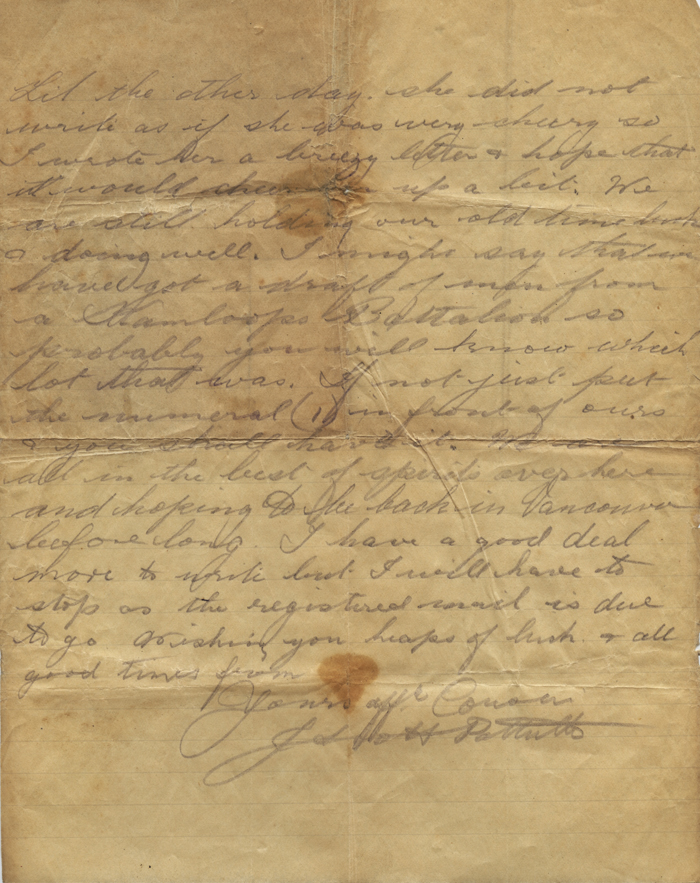 Lil the other day. she did not
write as if she was very cheery so
I wrote her a breezy letter & hope that
it would cheer her up a bit. We
are still holding our old time luck
& doing well. I might say that we
have got a draft of men from
a Kamloops Battalion so
probably you will know which
lot that was. If not just put
the numeral (1) in front of ours
& you shall have it. We are
all in the best of spirits over here
and hoping to be back in Vancouver
before long. I have a good deal
more to write but I will have to
stop as the registered mail is due
to go Wishing you heaps of luck & all
good times from
Your aff Cousin